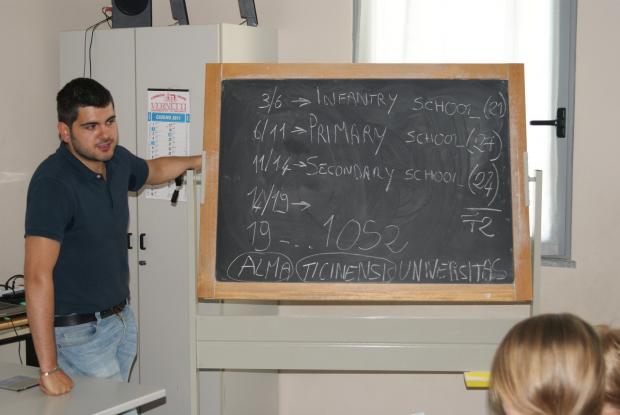 VERNETTI
GIUGNO 2011
3/6 → INFANTRY SCHOOL (21)
6/11 → PRIMARY SCHOOL (27)
11/14 → SECONDARY SCHOOL (24)
14/19 → 72
19 - .. 1052
ALMA TICINENSIS UNIVERSITAS